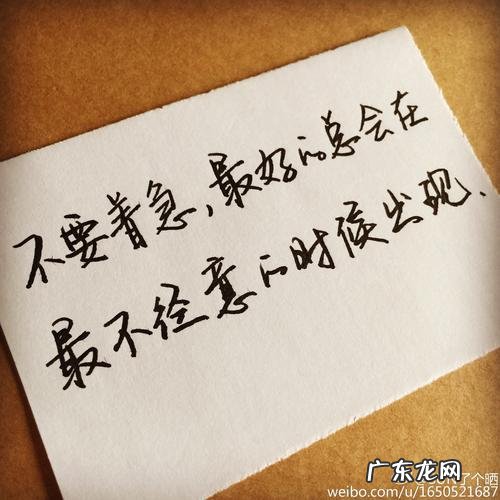 不要着急，最好的总会在
最不经意的时候出现.
了个晒
weibo.com/u/1650521687
广东龙网